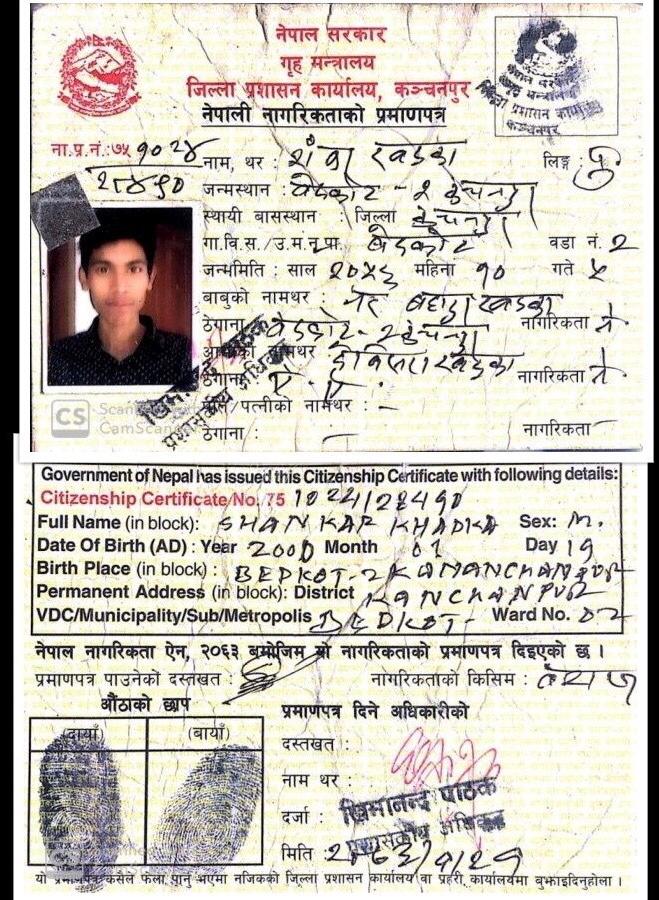 नेपाल सरकार
गृह मन्त्रालय
जिल्ला प्रशासन कार्यालय, कञ्चनपुर
नेपाली नागरिकताको प्रमाणपत्र
ना.प्र.नं.: ७५ १०२४
२८४९०
नाम, थर : शंकर खडका लिङ्ग : पु
जन्मस्थान : वेदकोट - २ कंचनपुर
स्थायी बासस्थान : जिल्ला कंचनपुर
गा.वि.स./उ.म.न.पा. वेदकोट वडा नं. २
जन्ममिति : साल २०५६ महिना १० गते ५
बाबुको नामथर : बहादुर खडका
ठेगाना : वेदकोट - २ कंचनपुर नागरिकता ने.
आमाको नामथर खडका
ठेगाना ऐ. ऐ. नागरिकता ने.
पति/पत्नीको नामथर : -
ठेगाना : नागरिकता
CS Scanned with
CamScanner
Government of Nepal has issued this Citizenship Certificate with following details:
Citizenship Certificate No. 75 1024/28490
Full Name (in block): SHANKAR KHADKA Sex: M.
Date Of Birth (AD) : Year 2000 Month 01 Day 19
Birth Place (in block) : BEDKOT-2 KANANCHANPUR
Permanent Address (in block): District KANCHANPUR
VDC/Municipality/Sub/Metropolis BEDKOT- Ward No. 02
नेपाल नागरिकता ऐन, २०६३ बमोजिम यो नागरिकताको प्रमाणपत्र दिइएको छ ।
प्रमाणपत्र पाउनेको दस्तखत : नागरिकताको किसिम : वंशज
औंठाको छाप
(दायाँ) (बायाँ)
प्रमाणपत्र दिने अधिकारीको
दस्तखत :
नाम थर : खिमानन्द पाठक
दर्जा : प्रशासकीय अधिकृत
मिति
यो प्रमाणपत्र कसैले फेला पानु भएमा नजिकको जिल्ला प्रशासन कार्यालय वा प्रहरी कार्यालयमा बुझाइदिनुहोला ।